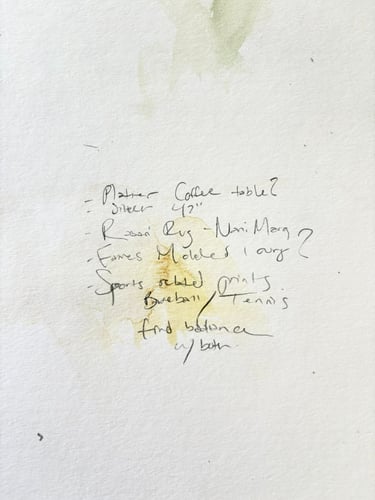 - Platner Coffee table?
- 42"
- Rug - Nani Marq
- Eames Molded Lounge?
- Sports related prints.
Baseball / Tennis
find balance
w/ both.